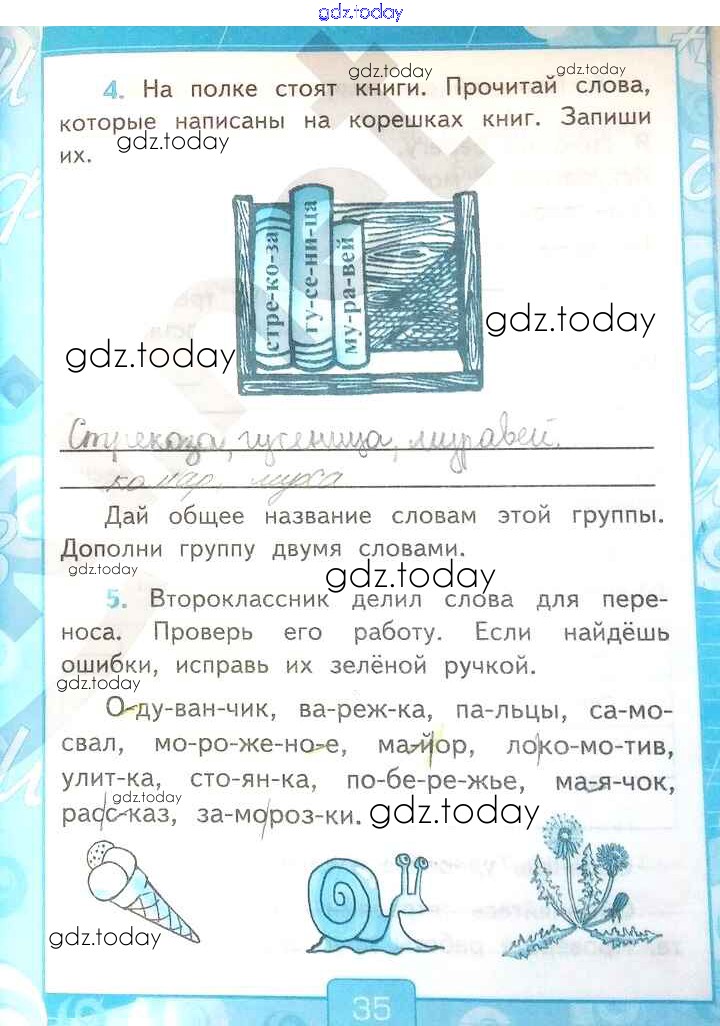 gdz.today
4. На полке стоят книги. Прочитай слова,
gdz.today
gdz.today
которые написаны на корешках книг. Запиши
их.
gdz.today
стре-ко-за
гу-се-ни-ца
му-ра-вей
gdz.today
gdz.today
Стрекоза, гусеница, муравей.
комар, муха
Дай общее название словам этой группы.
Дополни группу двумя словами.
gdz.today
gdz.today
5. Второклассник делил слова для пере-
носа. Проверь его работу. Если найдёшь
ошибки, исправь их зелёной ручкой.
gdz.today
О-ду-ван-чик, ва-реж-ка, па-льцы, са-мо-
свал, мо-ро-же-но-е, ма-йор, локо-мо-тив,
улит-ка, сто-ян-ка, по-бе-ре-жье, ма-я-чок,
gdz.today
расс-каз, за-мороз-ки.
gdz.today
gdz.today
35